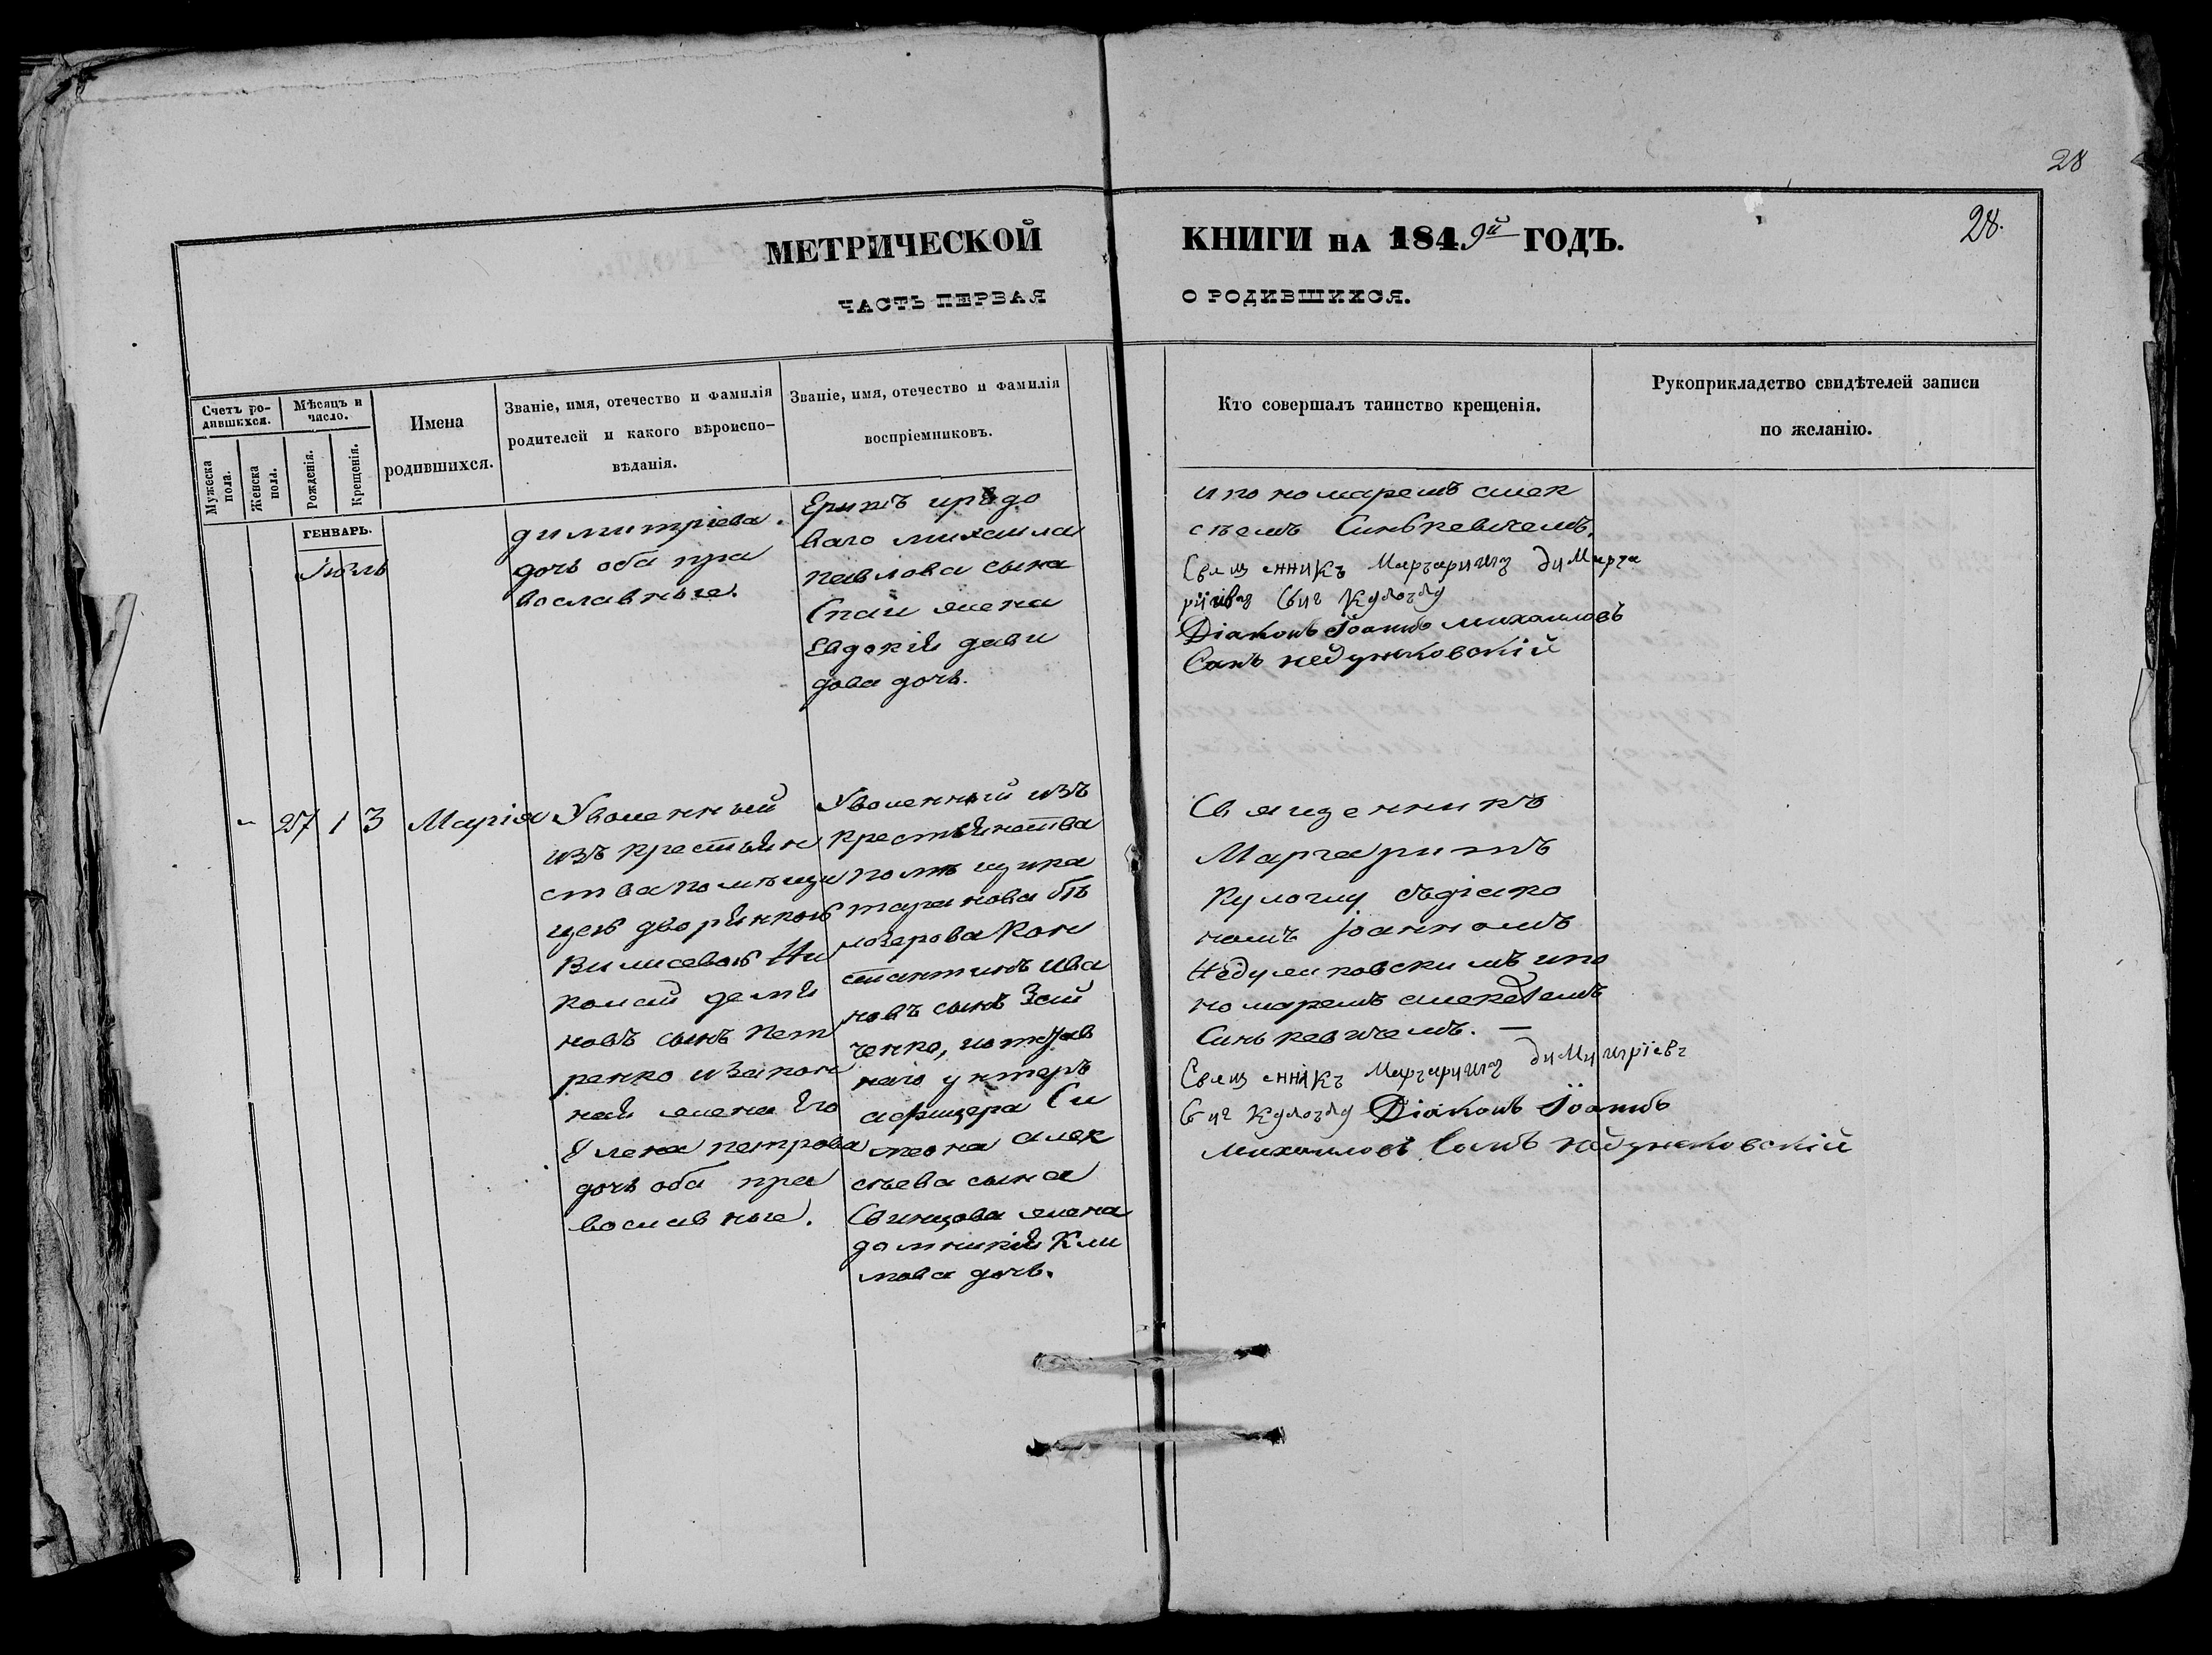 28
28.
МЕТРИЧЕСКОЙ КНИГИ НА 1849й ГОДЪ.
ЧАСТЬ ПЕРВАЯ О РОДИВШИХСЯ.
Счетъ ро-
дившихся.
Мужеска пола.
Женска пола.
Мѣсяцъ и
число.
Рожденія.
Крещенія.
Имена
родившихся.
Званіе, имя, отечество и фамилія
родителей и какого вѣроиспо-
вѣданія.
Званіе, имя, отечество и фамилія
воспріемниковъ.
Кто совершалъ таинство крещенія.
Рукоприкладство свидѣтелей записи
по желанію.
ГЕНВАРЬ.
Июль
димитріева
дочь оба пра
вославные.
ваго михаила
павлова сына
жена
Евдокія дави
дова дочь.
и пономаремъ алек
сѣемъ Синькевичемъ.
Священникъ Маргаритъ
Діаконъ Іоаннъ михаиловъ
Сынъ недуяковскій
27 1 3 Марія
Уволенный
изъ крестьян
ства помѣщи
цею дворянкою
Ни
колай демья
новъ сынъ пет
ренко изакон
ная жена Его
Елена петрова
дочь оба пра
вославные.
Уволенный изъ
крестьянства
помѣщика
Кон
стантинъ ива
новъ сынъ Зай
ченко, иотстав
наго унтеръ
афицера Си
меона алек
сѣева сына
Свинцова жена
домникия Кли
мова дочь.
Священникъ
Маргаритъ
Кулоглу съдіако
номъ Іоанномъ
Недуяковскимъ ипо
номаремъ алексѣемъ
Синькевичемъ. —
Священнікъ Маргаритъ димитріевъ
Діаконъ Іоаннъ
михаиловъ Сынъ недуяковскій